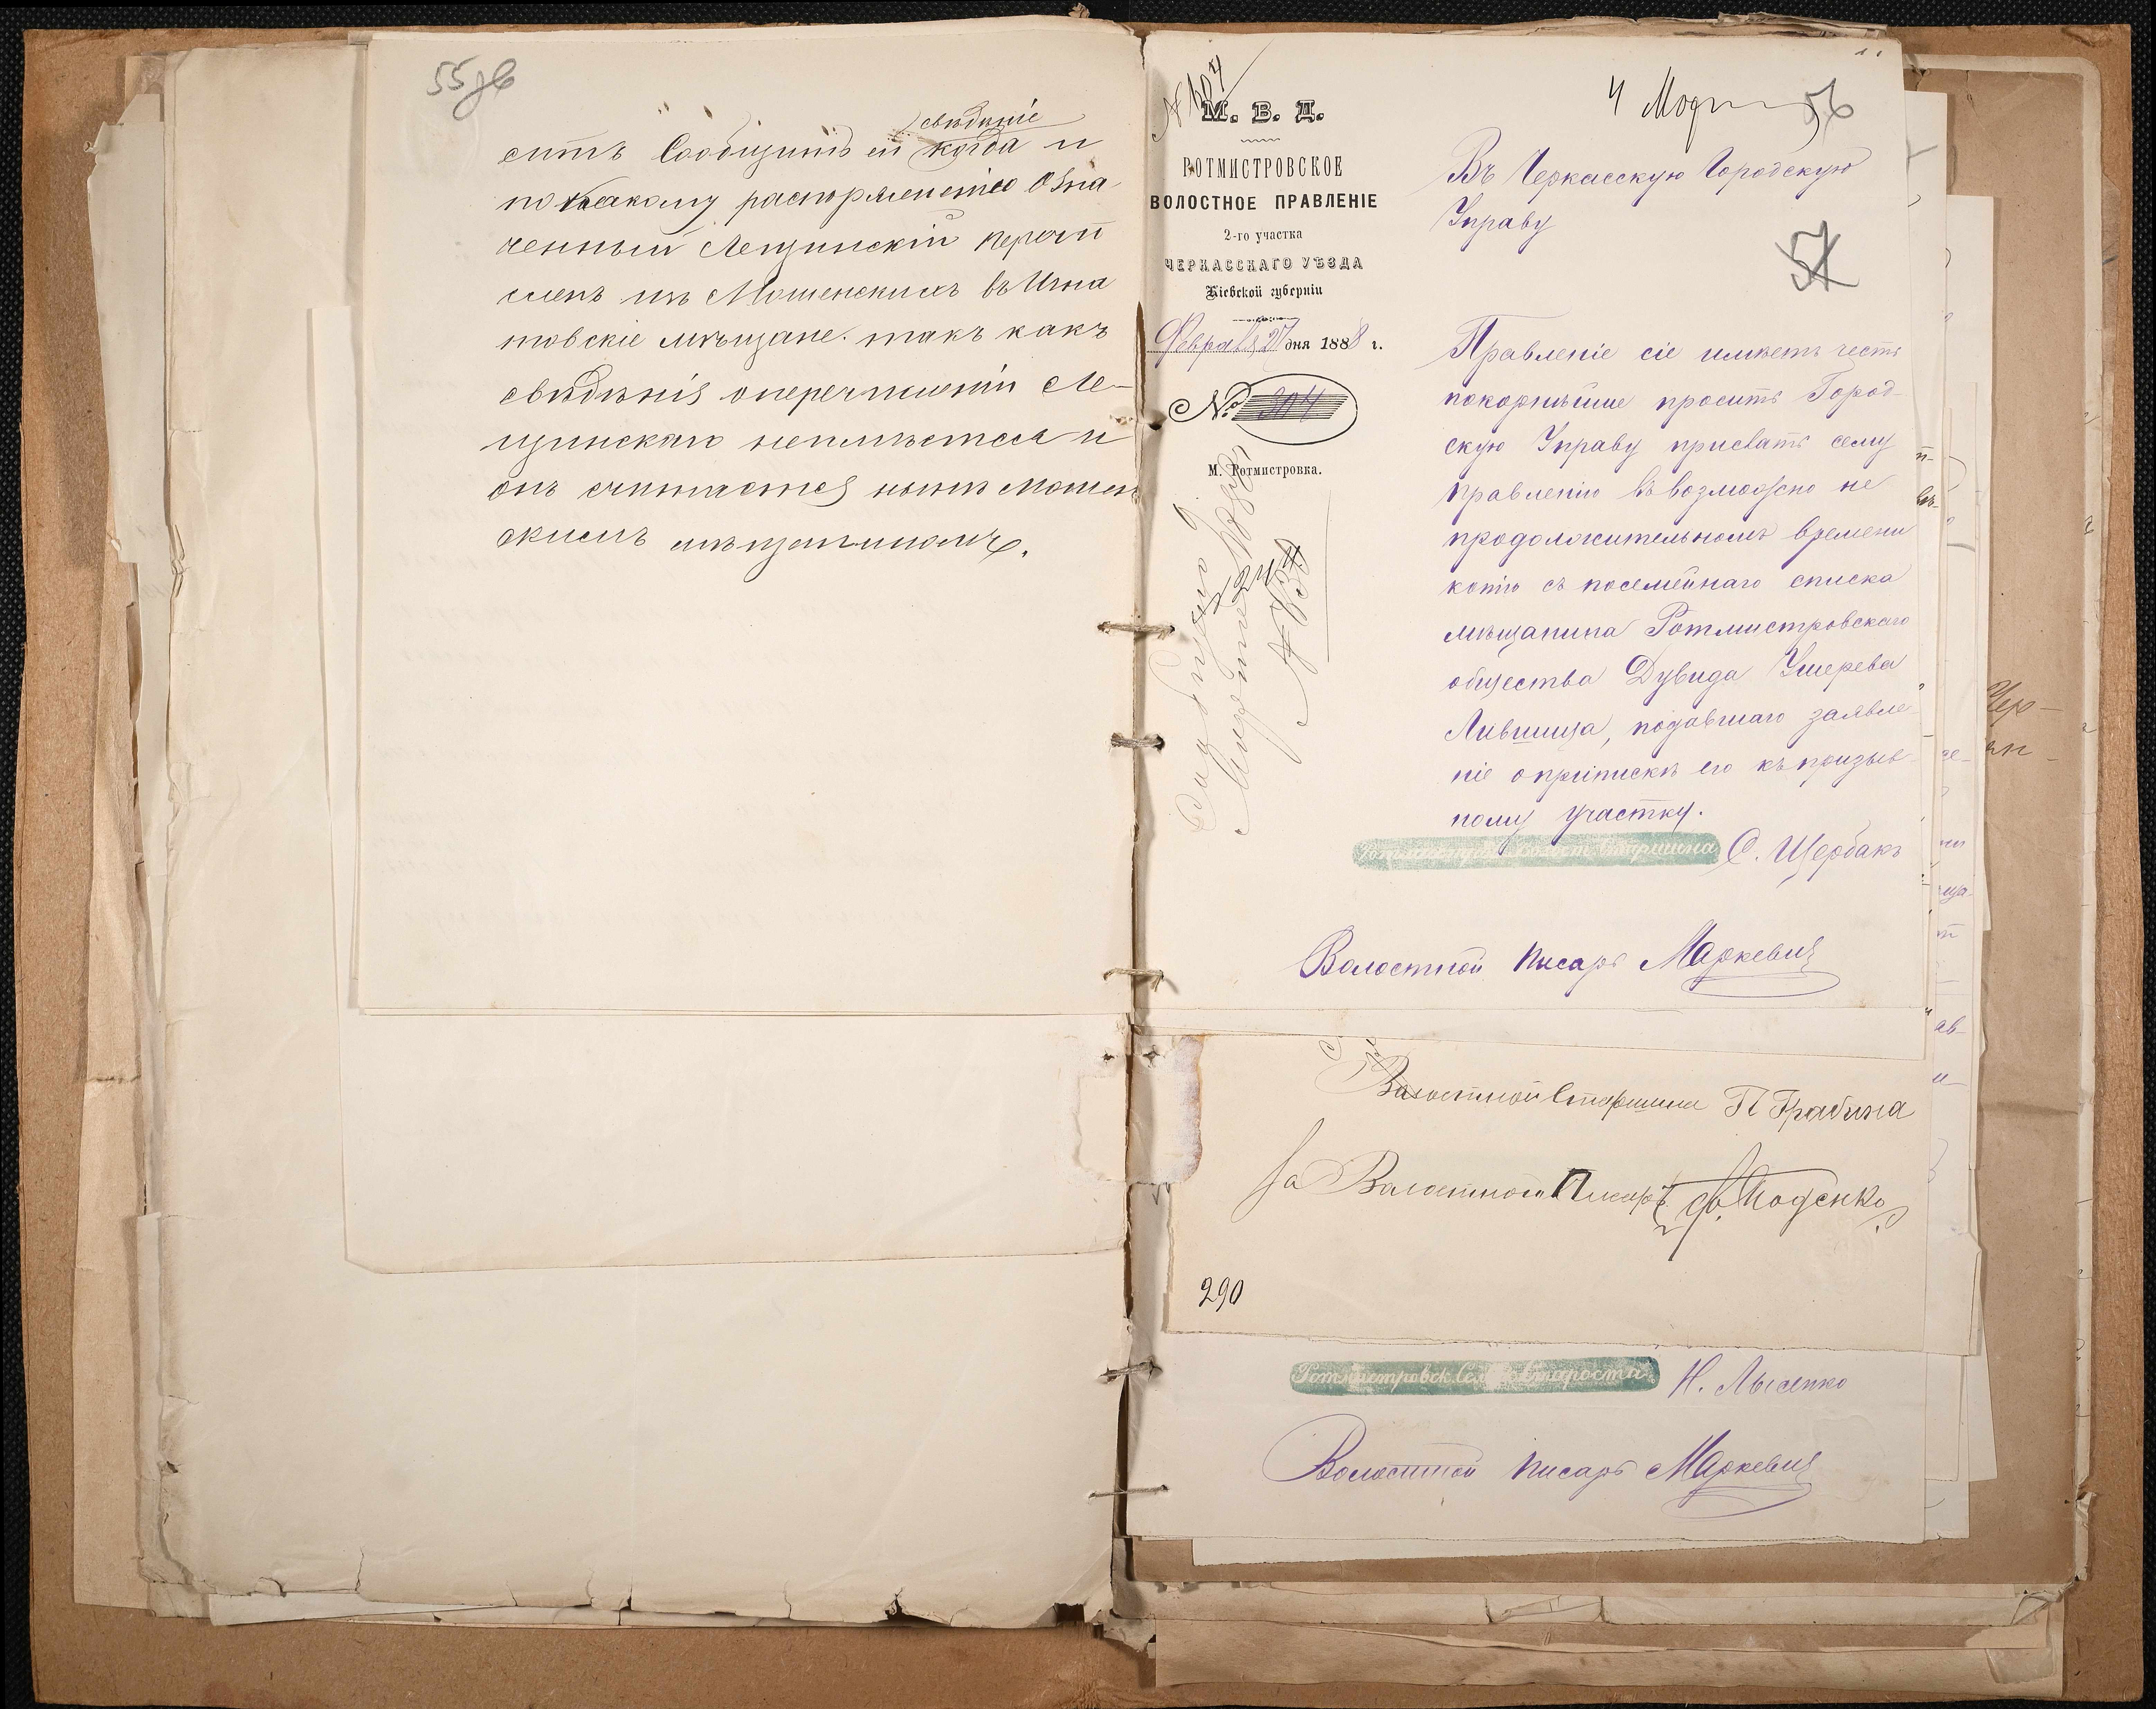 55об
свѣдѣніе
ситъ Сообщить ей когда и
по какому распоряженію Озна-
ченный Лещинскій перечи
сленъ изъ Мошенскихъ въ Игна
товскіе мѣщане. такъ какъ
свѣдѣнія о перечисленіи Ле-
щинскаго неимѣется и
онъ считается нынѣ Мошен
скимъ мѣщаниномъ.
М. В. Д.
РОТМИСТРОВСКОЕ
ВОЛОСТНОЕ ПРАВЛЕНІЕ
2-го участка
ЧЕРКАССКАГО УѢЗДА
Кіевской губерніи
Февраля 27 дня 1888 г.
№ 304
М. Ротмистровка.
4 56
Въ Черкасскую Городскую
Управу
57
Правленіе сіе имѣетъ честь
покорнѣйше просить Город-
скую Управу прислать сему
правленію въ возможно не
продолжительномъ времени
копію съ посемейнаго списка
мѣщанина Ротмистровскаго
общества Дувида Ушерева
Лившица, подавшаго заявле-
ніе о припискѣ его къ призыв-
ному участку.
Волост. Старшина С. Щербакъ
Волостной Писарь Маркевичъ
Волостной Старшина П Грабина
За Волостной Писарь
290
Ротмистровск. Сел. Староста Н. Лысенко
Волостной Писарь Маркевичъ